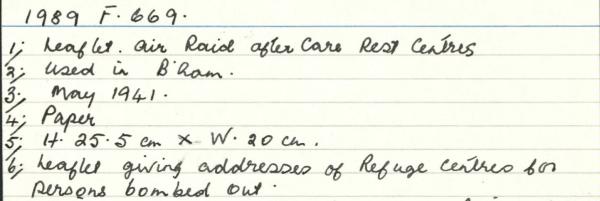 1989 F. 669.
1; Leaflet. Air Raid after Care Rest Centres
2; Used in B'ham.
3; May 1941.
4; Paper
5; H. 25.5 cm x W. 20 cm.
6; Leaflet giving addresses of Refuge Centres for
persons bombed out.